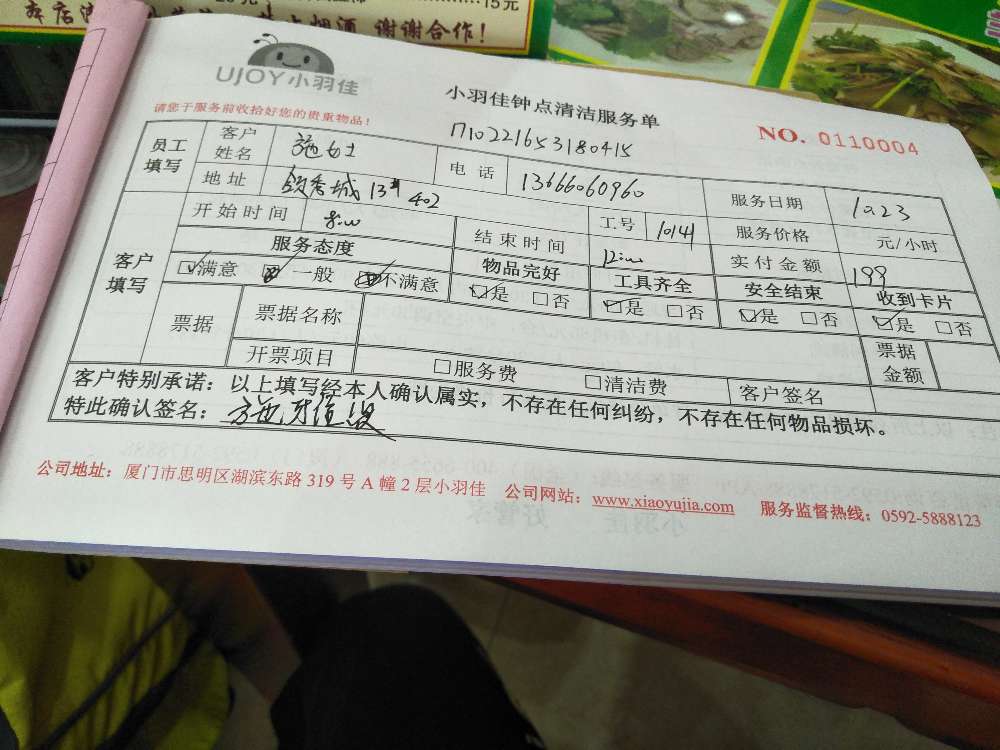 15元
烟酒 谢谢合作!
UJOY小羽佳
小羽佳钟点清洁服务单
请您于服务前收拾好您的贵重物品!
1710221653180415
NO. 0110004
员工填写 客户姓名 施女士 电话 13666060960 服务日期 10.23
地址 领秀城13# 402 工号 10141 服务价格 元/小时
客户填写 开始时间 8:00 结束时间 12:00 实付金额 199
服务态度 物品完好 工具齐全 安全结束 收到卡片
☑满意 一般 不满意 ☑是 □否 ☑是 □否 ☑是 □否 ☑是 □否
票据 票据名称 票据金额
开票项目 □服务费 □清洁费 客户签名
客户特别承诺：以上填写经本人确认属实，不存在任何纠纷，不存在任何物品损坏。
特此确认签名：
公司地址：厦门市思明区湖滨东路 319 号 A 幢 2 层小羽佳 公司网站：www.xiaoyujia.com 服务监督热线：0592-5888123